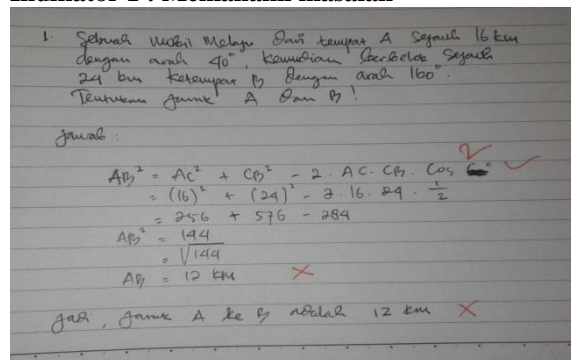 1. Sebuah mobil melaju dari tempat A sejauh 16 km
dengan arah 40°, kemudian berbelok sejauh
24 km ketempat B dengan arah 160°.
Tentukan jarak A dan B!
Jawab :
AB² = AC² + CB² - 2 . AC . CB . Cos
= (16)² + (24)² - 2 . 16 . 24 . 1/2
= 256 + 576 - 284
AB² = 144
= √144
AB = 12 km
Jadi, jarak A ke B adalah 12 km